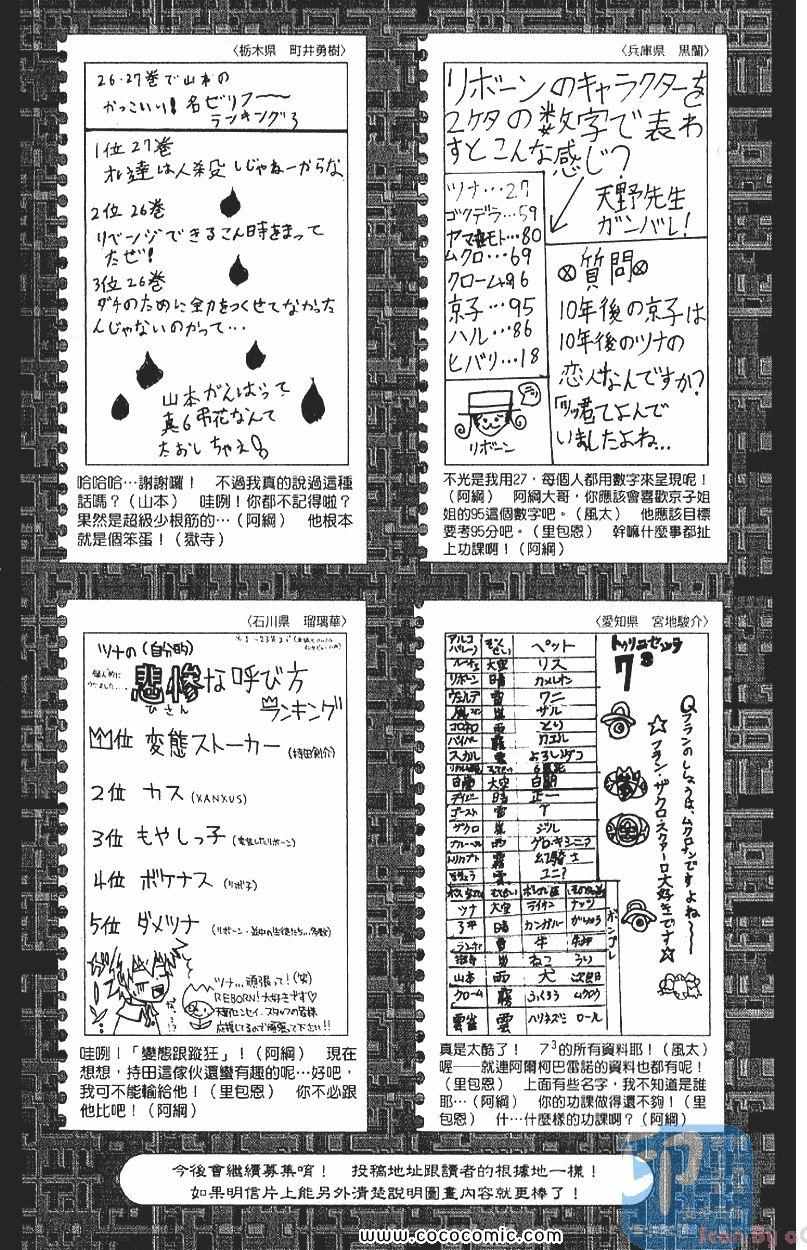 〈栃木県 町井勇樹〉
26・27巻で山本の
かっこいい！名ゼリフ〜
ランキング
1位 27巻
オレ達は人殺しじゃねーからな
2位 26巻
リベンジできるこん時をまって
たぜ！
3位 26巻
ダチのために全力をつくせてなかった
んじゃないのかって…
山本がんばって
真6弔花なんて
たおしちゃえ
哈哈哈…謝謝囉！ 不過我真的說過這種
話嗎？（山本） 哇咧！你都不記得啦？
果然是超級少根筋的…（阿綱） 他根本
就是個笨蛋！（獄寺）
〈兵庫県 黒闇〉
リボーンのキャラクターを
2ケタの数字で表わ
すとこんな感じ？
ツナ…27
ゴクデラ…59
ヤマモト…80
ムクロ…69
クローム…96
京子…95
ハル…86
ヒバリ…18
リボーン
天野先生
ガンバレ！
質問
10年後の京子は
10年後のツナの
恋人なんですか？
「ツッ君」てよんで
いましたよね…
不光是我用27，每個人都用數字來呈現呢！
（阿綱） 阿綱大哥，你應該會喜歡京子姐
姐的95這個數字吧。（風太） 他應該目標
要考95分吧。（里包恩） 幹嘛什麼事都扯
上功課啊！（阿綱）
〈石川県 瑠璃華〉
ツナの（自分的）
悲惨な呼び方
ひさん
ランキング
位 変態ストーカー（持田剣介）
2位 カス（XANXUS）
3位 もやしっ子
4位 ボケナス（リボ子）
5位 ダメツナ
ツナ…頑張って！（笑）
REBORN！大好きです♡
天野センセイ、スタッフの皆様
応援してるので頑張って下さい！！
哇咧！「變態跟蹤狂」！（阿綱） 現在
想想，持田這傢伙還蠻有趣的呢…好吧，
我可不能輸給他！（里包恩） 你不必跟
他比吧！（阿綱）
〈愛知県 宮地駿介〉
トゥリニセッテ
7³
アルコバレーノ ぞくせい ペット
ルーチェ 大空 リス
リボーン 晴 カメレオン
ヴェルデ 雷 ワニ
風 嵐 サル
コロネロ 雨 とり
バイパー 霧 カエル
スカル 雲 よろいダコ
白蘭 大空 白龍
デイジー 晴
ゴースト 雷
ザクロ 嵐
ブルーベル 雨
トリカブト 霧 幻騎士
ツナ 大空 ライオン ナッツ
了平 晴 カンガルー
雷 牛 牛丼
嵐 ねこ うり
山本 雨 犬 次郎
クローム 霧 ふくろう ムクロウ
雲雀 雲 ハリネズミ ロール
ボンゴレ
Qフランのししょうは、ムクロサンですよね〜
☆フラン・ザクロ・スクアーロ大好きです☆
真是太酷了！ 7³的所有資料耶！（風太）
喔——就連阿爾柯巴雷諾的資料也都有呢！
（里包恩） 上面有些名字，我不知道是誰
耶…（阿綱） 你的功課做得還不夠！（里
包恩） 什…什麼樣的功課啊？（阿綱）
今後會繼續募集唷！ 投稿地址跟讀者的根據地一樣！
如果明信片上能另外清楚說明圖畫內容就更棒了！
www.cococomic.com